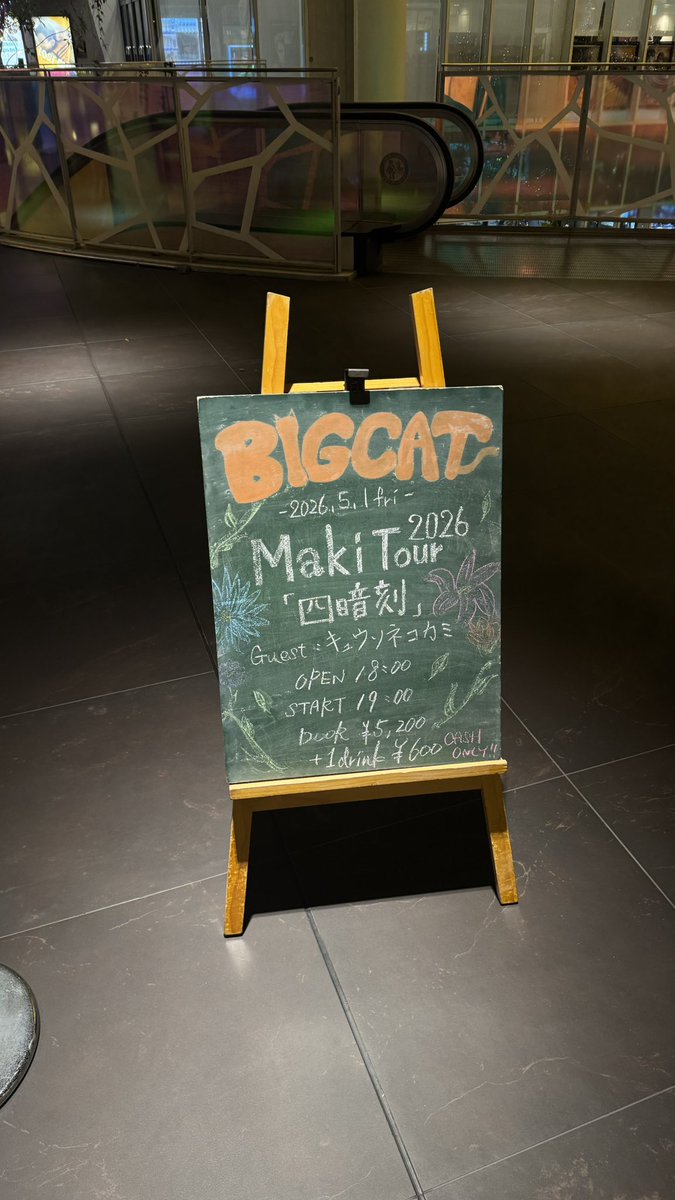 BIGCAT
-2026.5.1 fri-
2026
Maki Tour
「四暗刻」
Guest:キュウソネコカミ
OPEN 18:00
START 19:00
book ¥5,200
+1drink ¥600 CASH ONLY!!